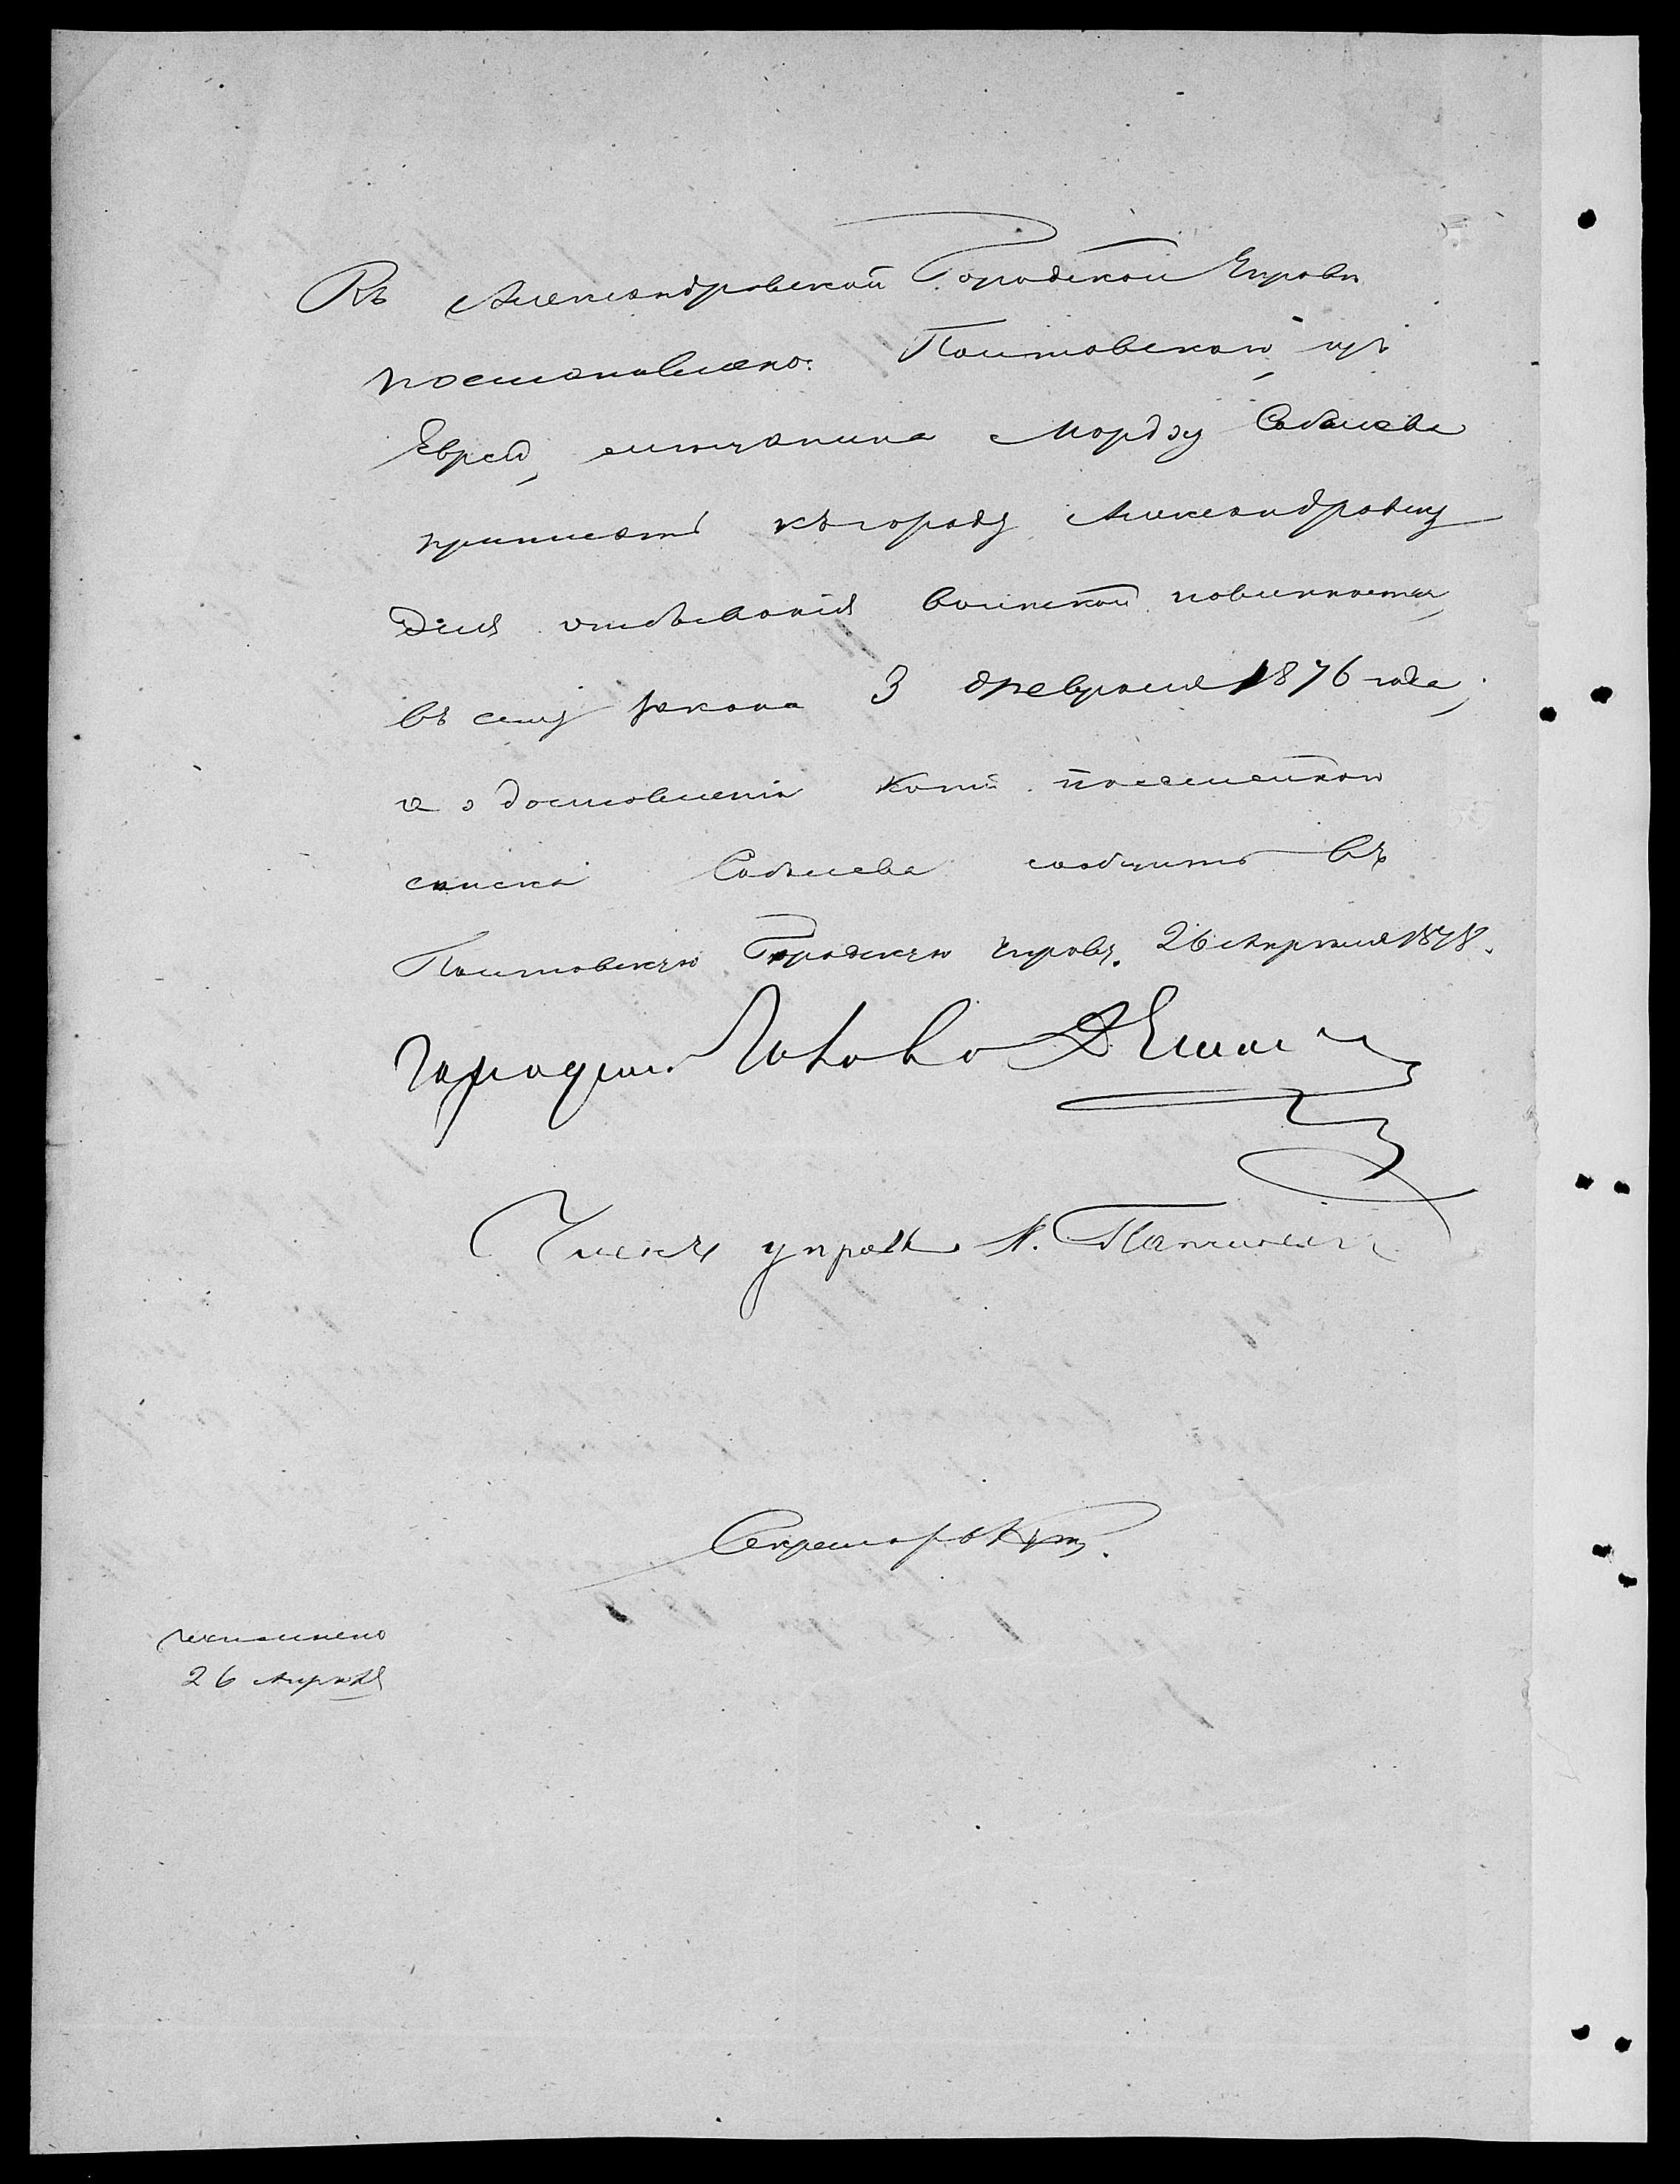 Въ Александровской Городской Управѣ
постановлено: Полтавскаго изъ
Евреевъ, мѣщанина Мордху Соболева
приписать къ городу Александровску
для отбыванія воинской повинности,
въ силу закона 3 февраля 1876 года,
и о доставленіи копіи посемейнаго
списка Соболева сообщить въ
Полтавскую Городскую Управу. 26 Апрѣля 1878.
Городской Голова
Членъ управы
Секретарь
исполнено
26 Апрѣля